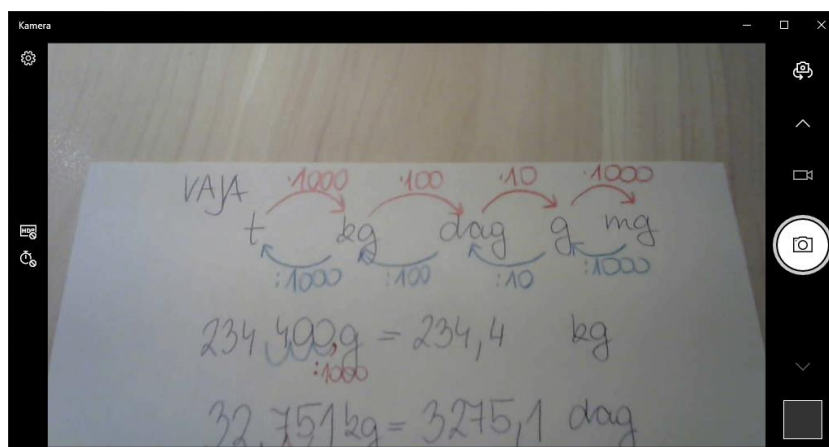 Kamera
VAJA ·1000 ·100 ·10 ·1000
t kg dag g mg
:1000 :100 :10 :1000
234,400,g = 234,4 kg
:1000
32,751kg = 3275,1 dag